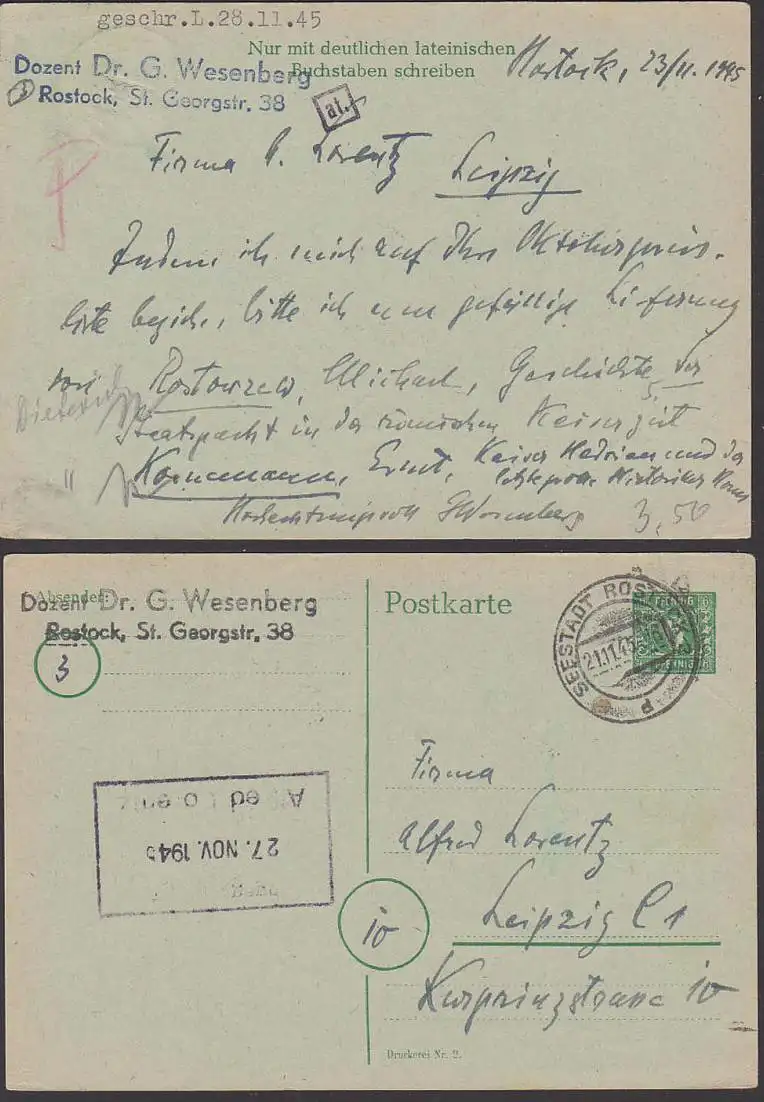 geschr.L.28.11.45
Nur mit deutlichen lateinischen
Buchstaben schreiben
Dozent Dr. G. Wesenberg
Rostock, St. Georgstr. 38
Rostock, 23/11. 1945
at.
Firma A. Lorentz Leipzig
Indem ich mich auf Ihre Oktoberpreis-
liste beziehe, bitte ich um gefällige Lieferung
von Rostowzew, Michael, Geschichte der
Staatspacht in der römischen Kaiserzeit
" Kornemann, Ernst, Kaiser Hadrian und der
letzte grosse Historiker Roms
Hochachtungsvoll GWesenberg 3,50
Absender:
Dozent Dr. G. Wesenberg
Rostock, St. Georgstr. 38
3
Postkarte
SEESTADT ROSTOCK
21.11.45
P
27. NOV. 1945
Firma
Alfred Lorentz
10
Leipzig C 1
Kurprinzstrasse 10
Druckerei Nr. 2.